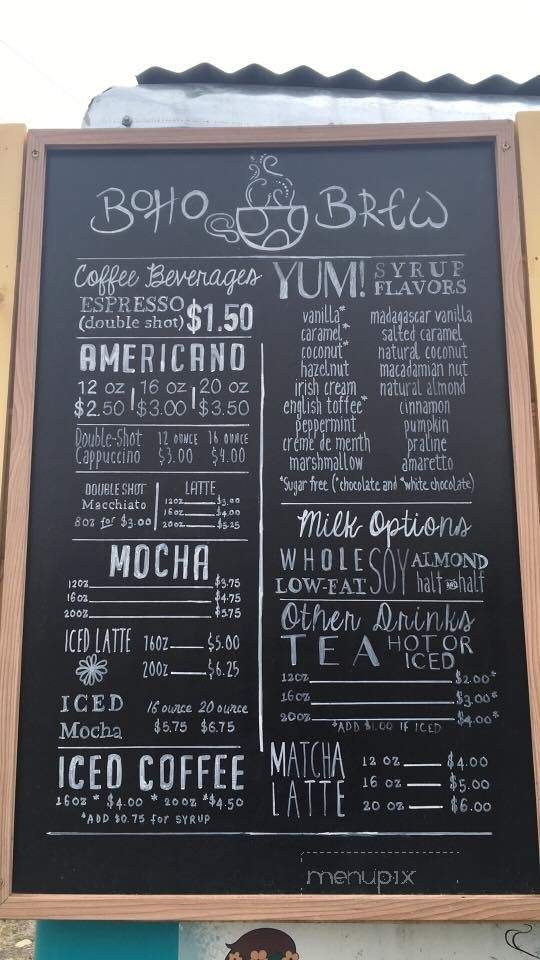 BOHO BREW
Coffee Beverages
ESPRESSO
(double shot) $1.50
AMERICANO
12 oz | 16 oz | 20 oz
$2.50 | $3.00 | $3.50
Double-Shot 12 OUNCE 16 OUNCE
Cappuccino $3.00 $4.00
DOUBLE SHOT
Macchiato
8oz for $3.00
LATTE
12oz $3.00
16oz $4.00
20oz $5.25
MOCHA
12oz $3.75
16oz $4.75
20oz $5.75
ICED LATTE 16oz $5.00
20oz $6.25
ICED 16 ounce 20 ounce
Mocha $5.75 $6.75
ICED COFFEE
16oz * $4.00 * 20oz *$4.50
*ADD $0.75 for SYRUP
YUM! SYRUP
FLAVORS
vanilla* madagascar vanilla
caramel* salted caramel
coconut* natural coconut
hazelnut macadamian nut
irish cream natural almond
english toffee* cinnamon
peppermint pumpkin
créme de menth praline
marshmallow amaretto
*Sugar free (*chocolate and *white chocolate)
Milk Options
WHOLE SOY ALMOND
LOW-FAT half and half
Other Drinks
TEA HOT OR
ICED
12oz $2.00*
16oz $3.00*
20oz $4.00*
*ADD $1.00 IF ICED
MATCHA
LATTE
12 oz $4.00
16 oz $5.00
20 oz $6.00
menupix